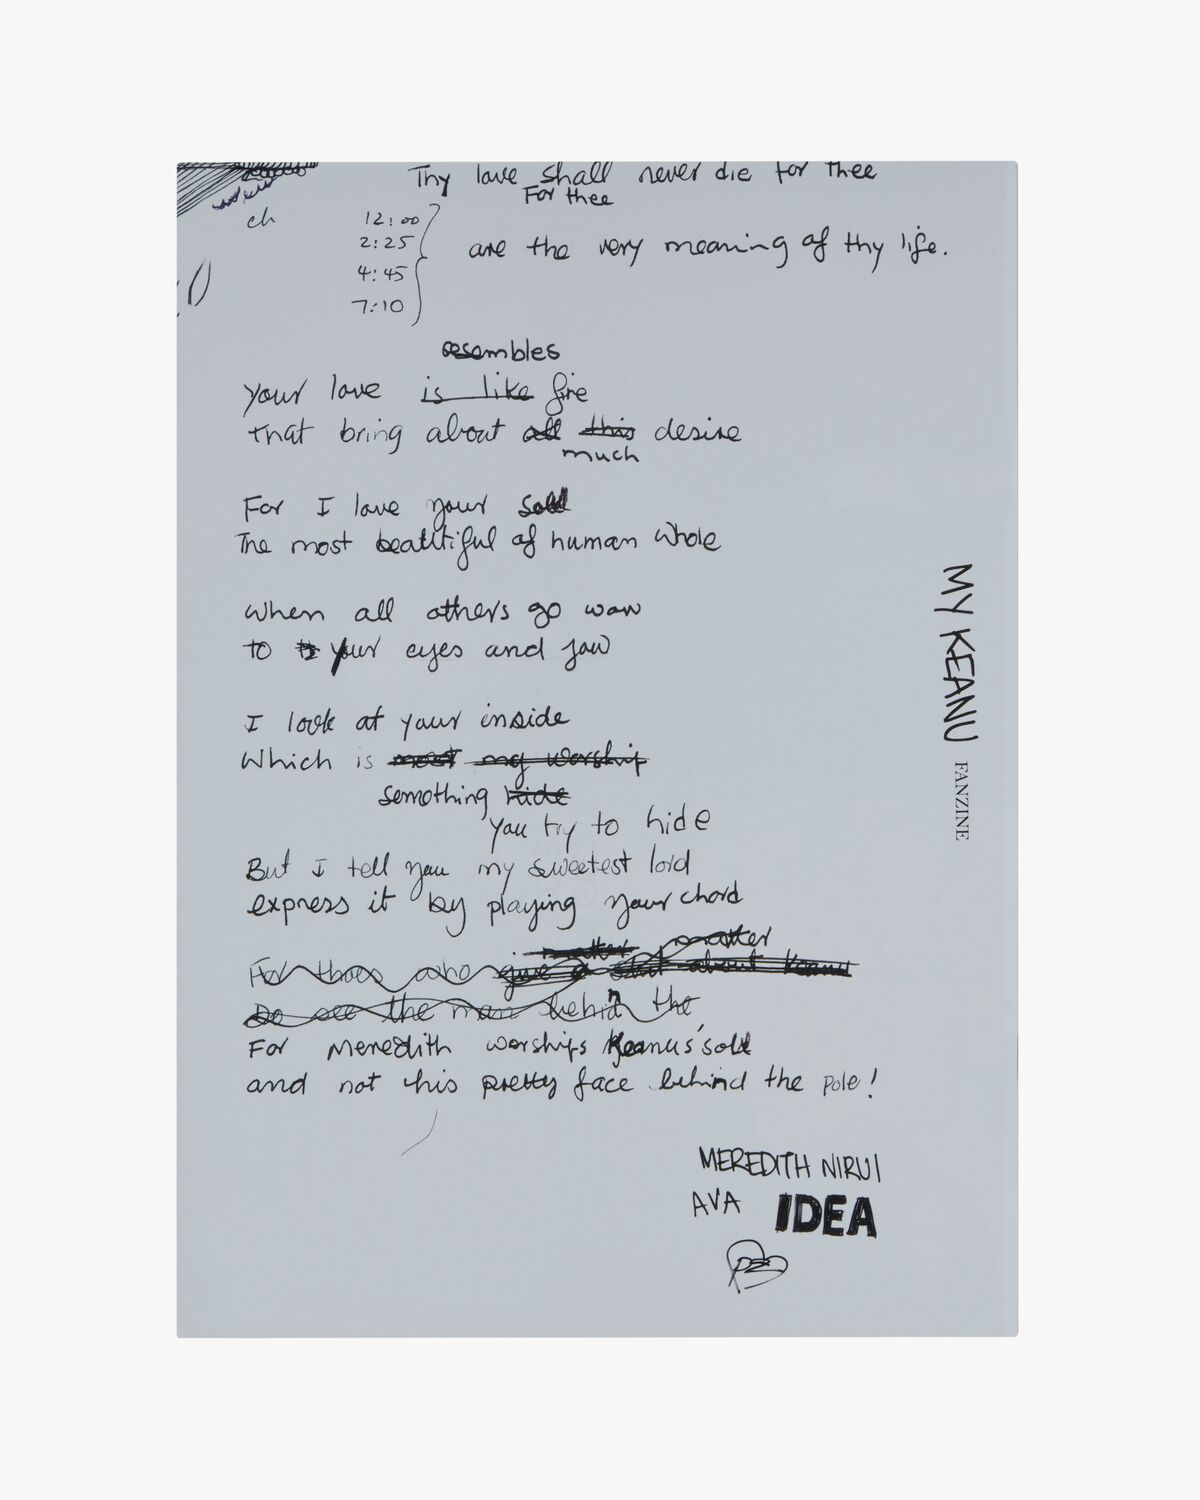 Thy love shall never die for thee
For thee
ch
12:00
2:25
4:45
7:10
are the very meaning of thy life.
resembles
Your love is like fire
That bring about all this desire
much
For I love your soul
The most beautiful of human whole
When all others go waw
to your eyes and jaw
I look at your inside
Which is most my worship
something hide
you try to hide
But I tell you my sweetest lord
express it by playing your chord
matter matter
For those who give a shit about Keanu
Do see the man behind the
For Meredith worships Keanus' soul
and not his pretty face behind the pole!
MEREDITH NIRUI
AVA IDEA
MY KEANU FANZINE